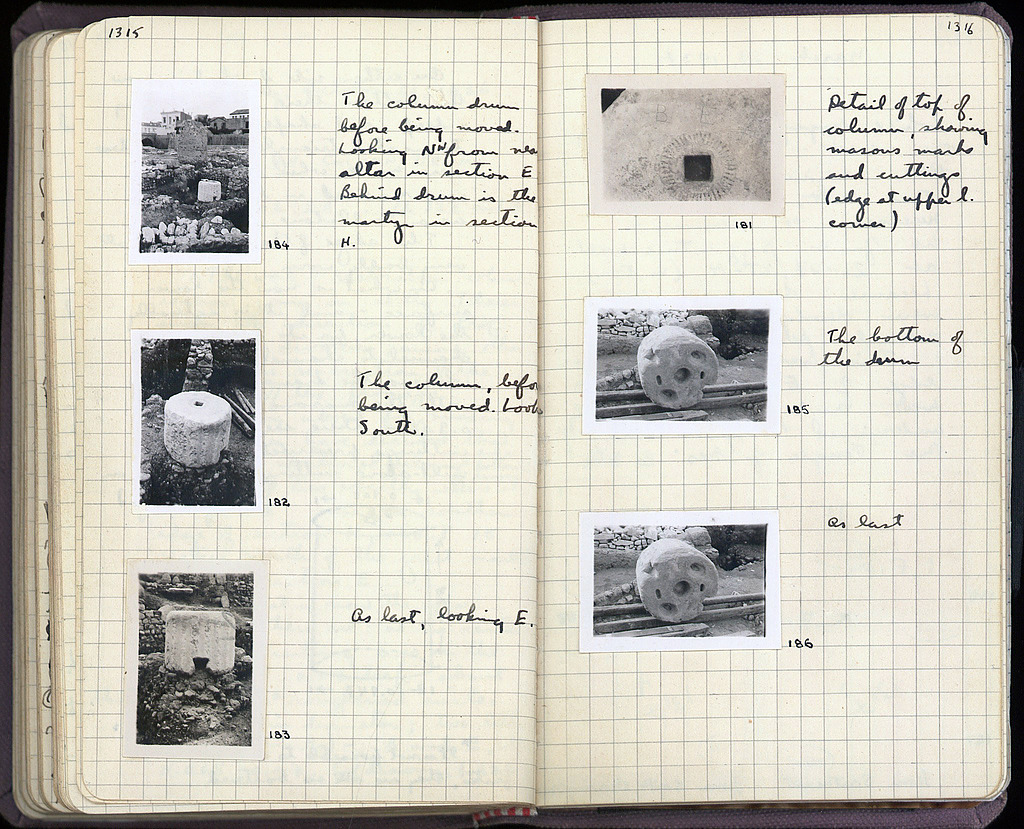 1315
The column drum
before being moved.
Looking NW from nea
altar in section E
Behind drum is the
martyr in section
H.
184
The column, befo
being moved. Look
South.
182
As last, looking E.
183
1316
Detail of top of
column, showing
masons marks
and cuttings
(edge at upper l.
corner)
B E
181
The bottom of
the drum
185
As last
186